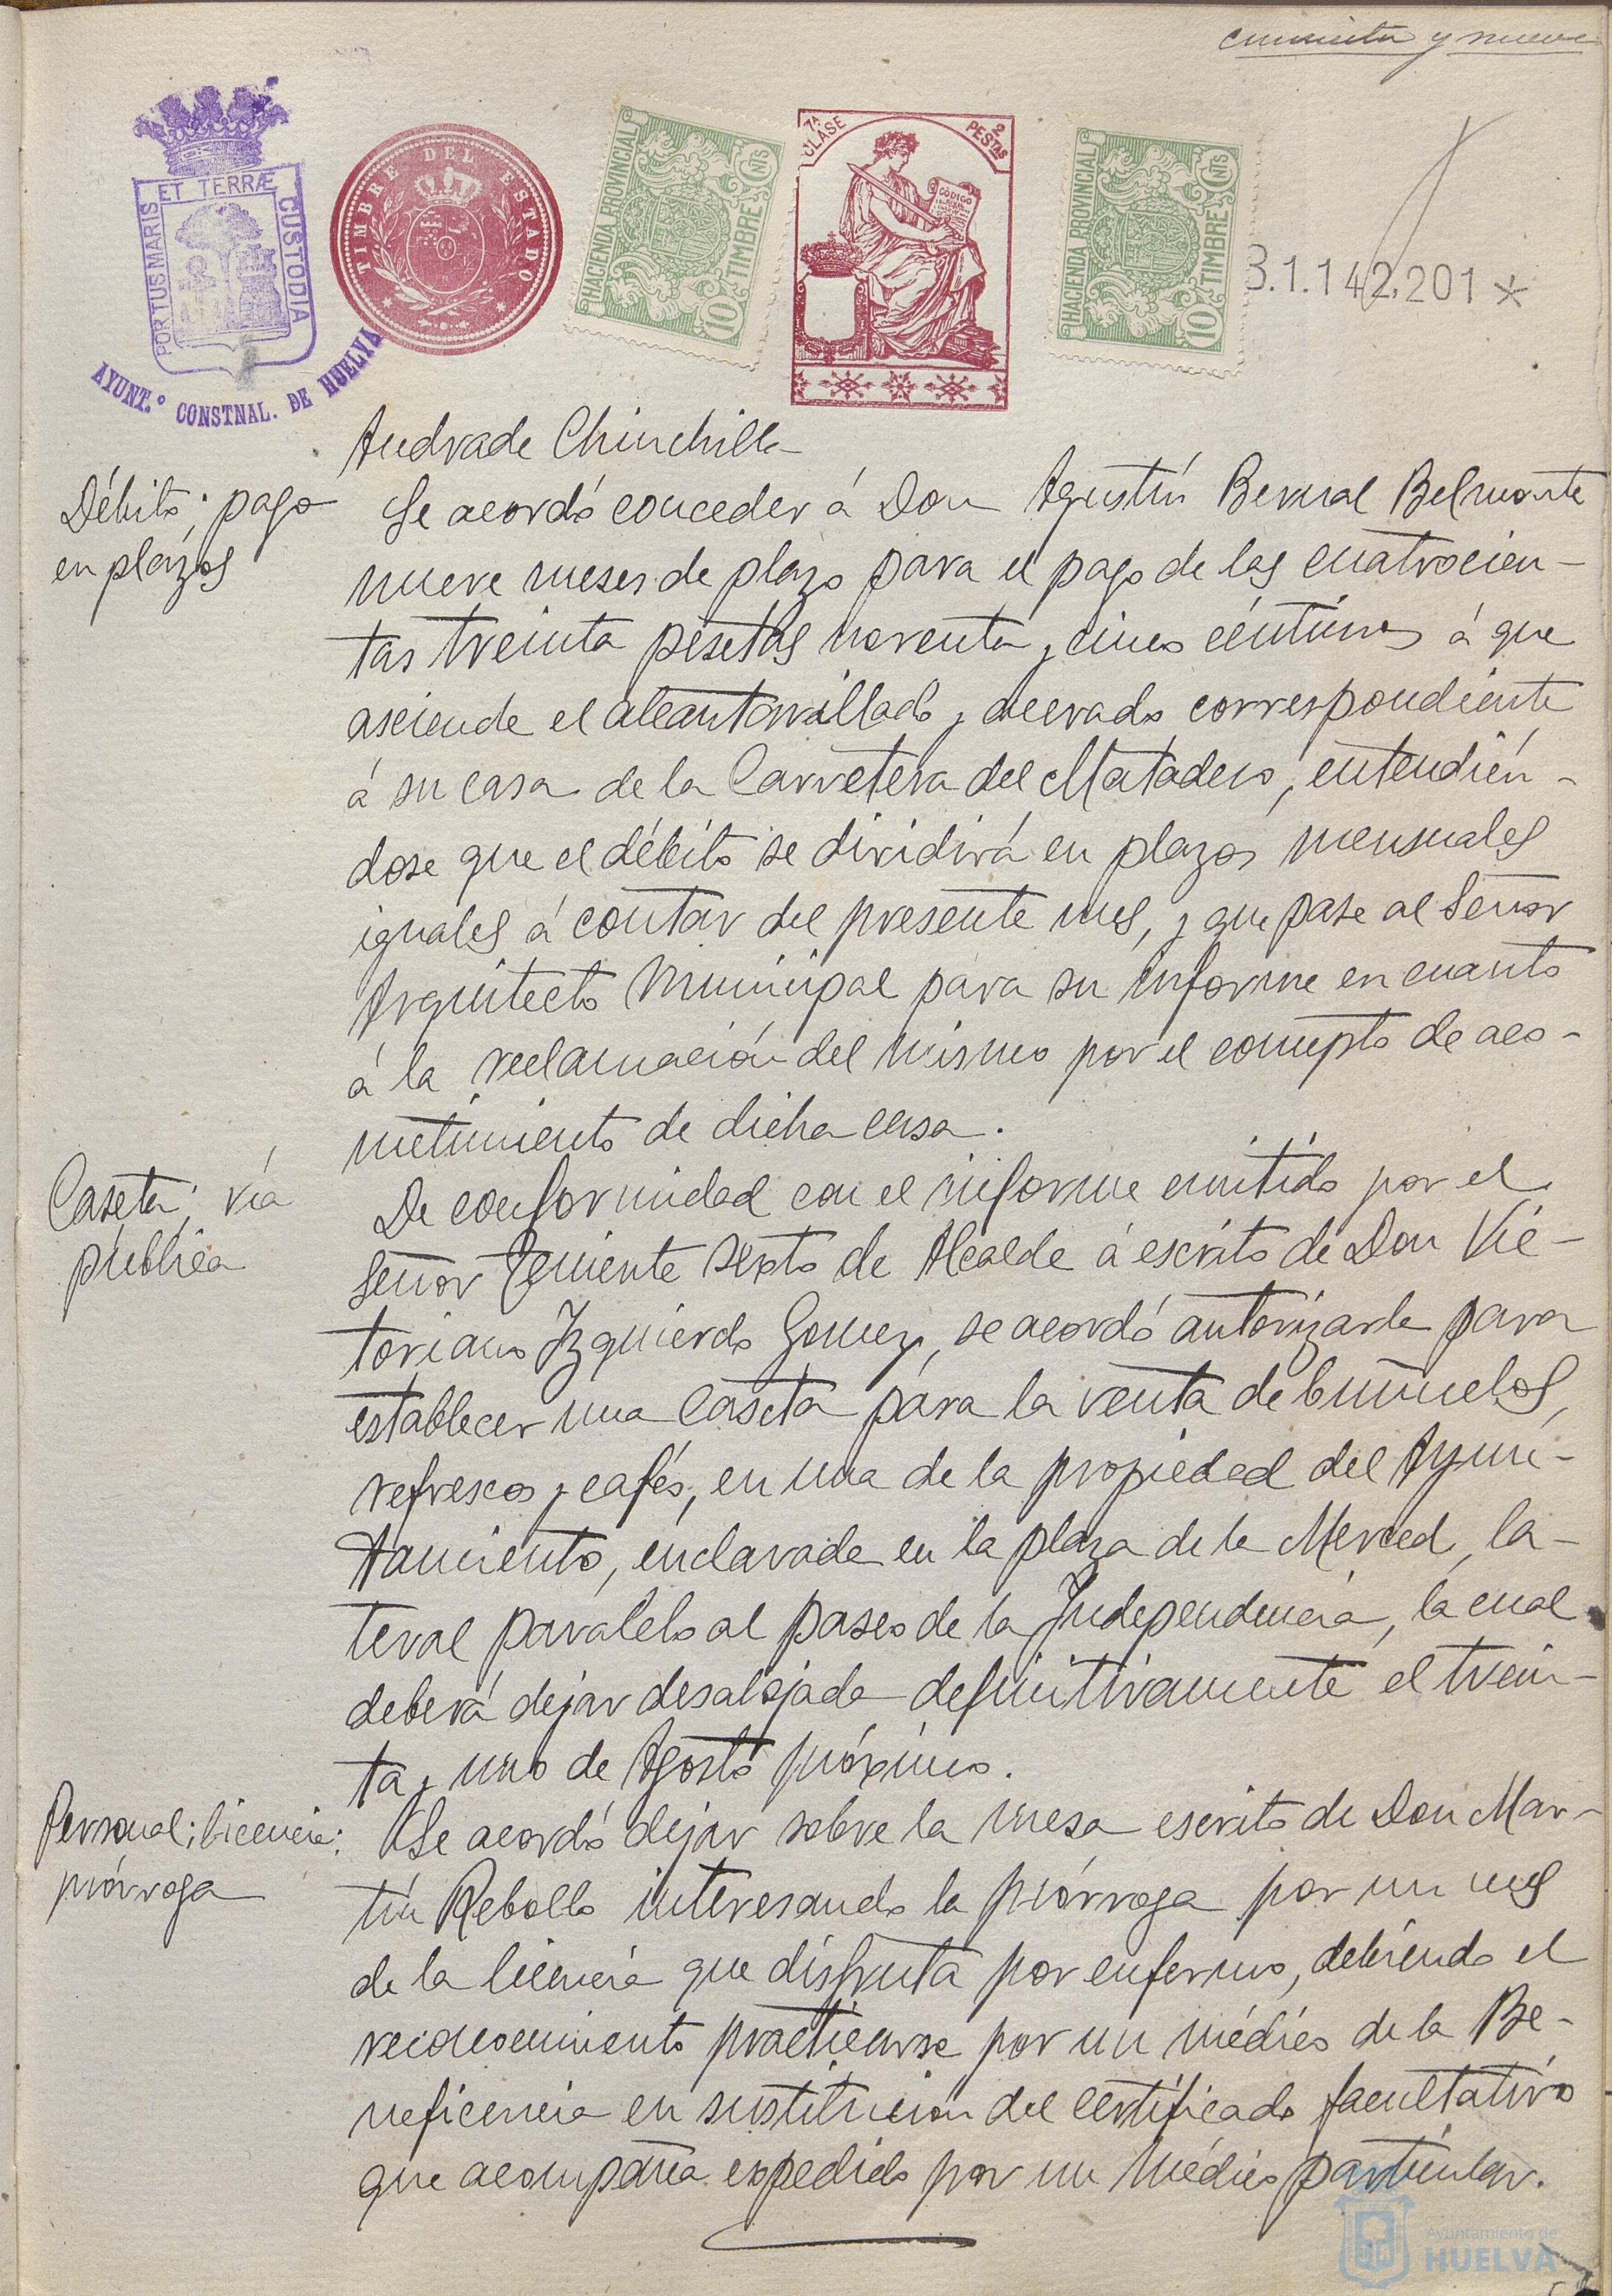 cincuenta y nueve
PORTUS MARIS ET TERRÆ CUSTODIA
AYUNT.º CONSTNAL. DE HUELVA
TIMBRE DEL ESTADO
HACIENDA PROVINCIAL
10 CNTS
TIMBRE
7ª CLASE
2 PESTAS
CÓDIGO
HACIENDA PROVINCIAL
10 CNTS
TIMBRE
B.1.142,201 *
Andrade Chinchilla
Débito; pago
en plazos
Se acordó conceder á Don Agustín Bernal Belmonte
nueve meses de plazo para el pago de las cuatrocien-
tas treinta pesetas noventa y cinco céntimos á que
asciende el alcantarillado y acerado correspondiente
á su casa de la Carretera del Matadero, entendién-
dose que el débito se dividirá en plazos mensuales
iguales á contar del presente mes, y que pase al Señor
Arquitecto Municipal para su informe en cuanto
á la reclamación del mismo por el concepto de aco-
metimiento de dicha casa.
Caseta; vía
pública
De conformidad con el informe emitido por el
Señor Teniente sexto de Alcalde á escrito de Don Vic-
toriano Izquierdo Gomez, se acordó autorizarle para
establecer una caseta para la venta de buñuelos,
refrescos y cafés, en una de la propiedad del Ayun-
tamiento, enclavada en la plaza de la Merced, la-
teral paralelo al paseo de la Independencia, la cual
deberá dejar desalojada definitivamente el trein-
ta y uno de Agosto próximo.
Personal; licencia;
prórroga
Se acordó dejar sobre la mesa escrito de Don Mar-
tín Rebollo interesando la prórroga por un mes
de la licencia que disfruta por enfermo, debiendo el
reconocimiento practicarse por un médico de la Be-
neficencia en sustitución del certificado facultativo
que acompaña expedido por un médico particular.
Ayuntamiento de
HUELVA